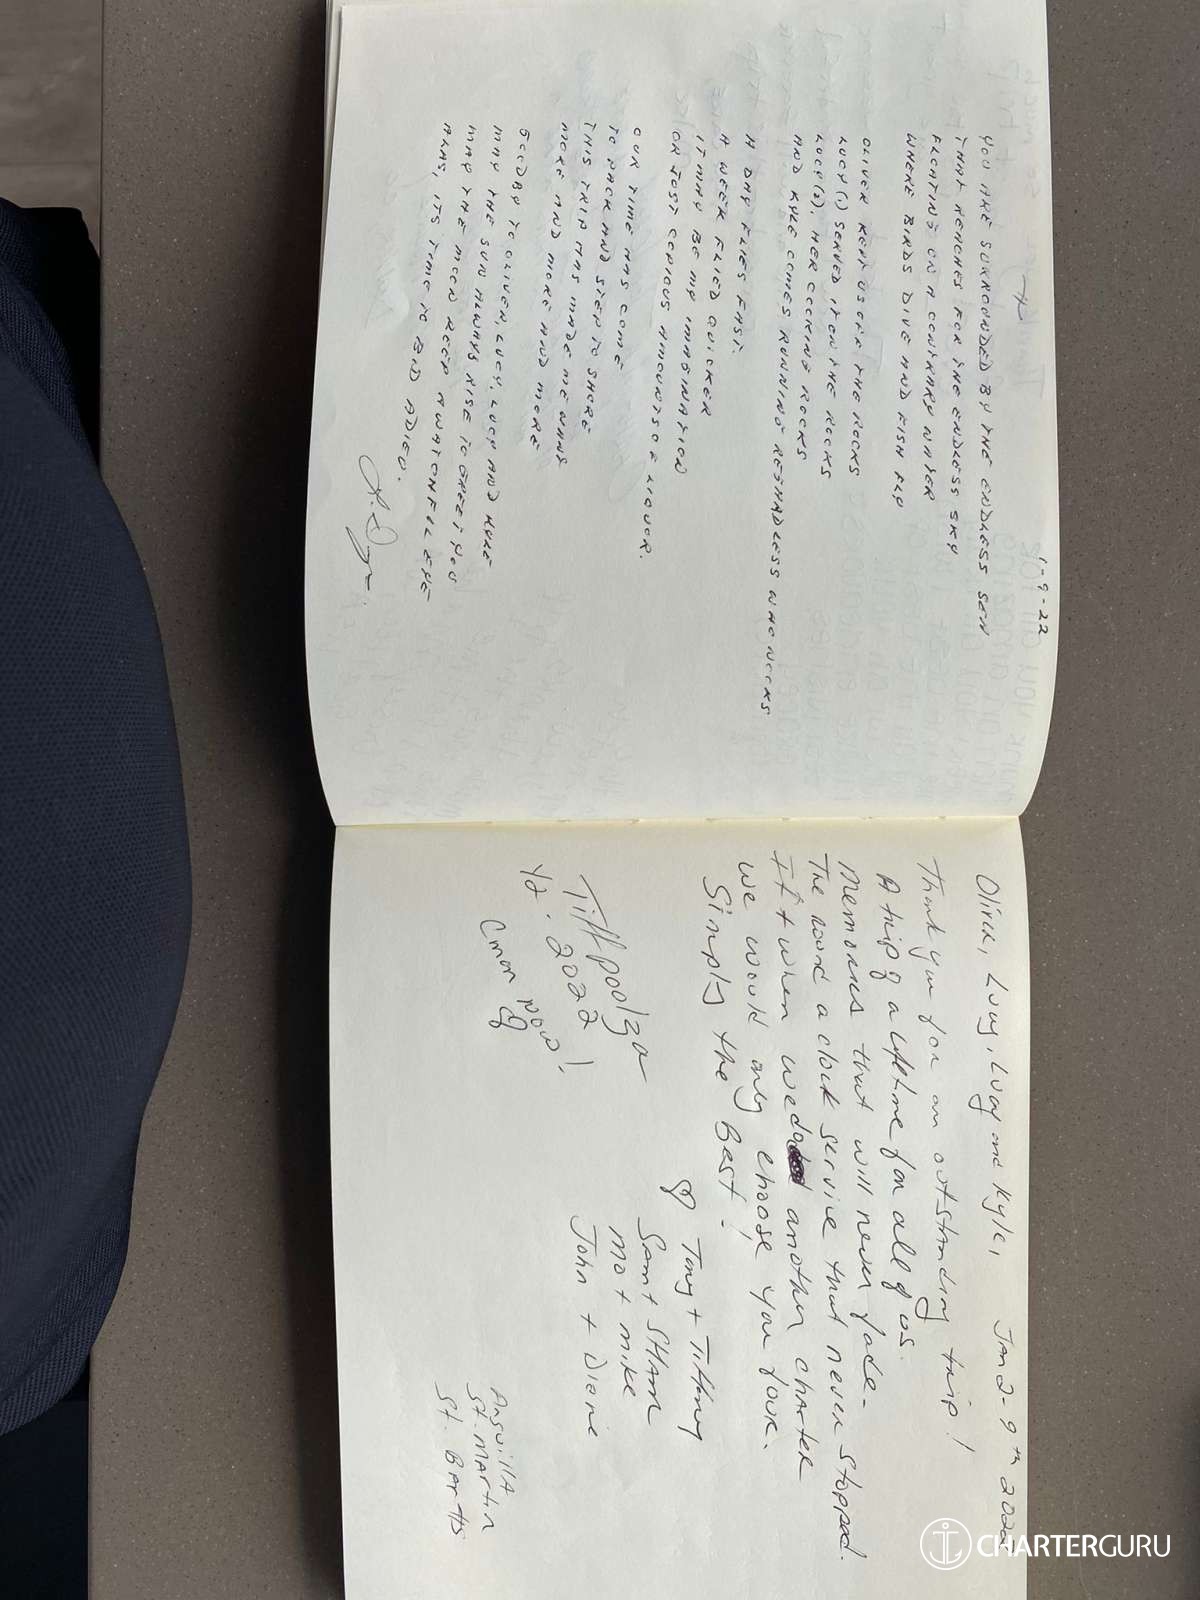 1-9-22
YOU ARE SURROUNDED BY THE ENDLESS SEA
THAT REACHES FOR THE ENDLESS SKY
FLOATING ON A CONTRARY WATER
WHERE BIRDS DIVE AND FISH FLY
OLIVER KEPT US OFF THE ROCKS
LUCY (1) SERVED IT ON THE ROCKS
LUCY (2), HER COOKING ROCKS
AND KYLE COMES RUNNING REGARDLESS WHO NOCKS
A DAY FLIES FAST.
A WEEK FLIED QUICKER
IT MAY BE MY IMAGINATION
OR JUST COPIOUS AMOUNTS OF LIQUER.
OUR TIME HAS COME
TO PACK AND STEP TO SHORE
THIS TRIP HAS MADE ME WANT
MORE AND MORE AND MORE
GOODBY TO OLIVER, LUCY, LUCY AND KYLE
MAY THE SUN ALWAYS RISE TO GREET YOU
MAY THE MOON KEEP A WATCHFUL EYE
ALAS, ITS TIME TO BID ADIEU.
Jan 2-9th 2022
Oliver, Lucy, Lucy and Kyle,
Thank you for an outstanding trip!
A trip of a lifetime for all of us.
Memories that will never fade-
The round a clock service that never stopped.
If + when we do another charter
we would only choose you four.
Simply the Best!
♡ Tony + Tiffany
Sam + SHAM
Mo + mike
John + Diane
Tiffpoolza
1/2 · 2022
Cmon now!
Anguilla
St. Martin
St. Barths
CHARTERGURU